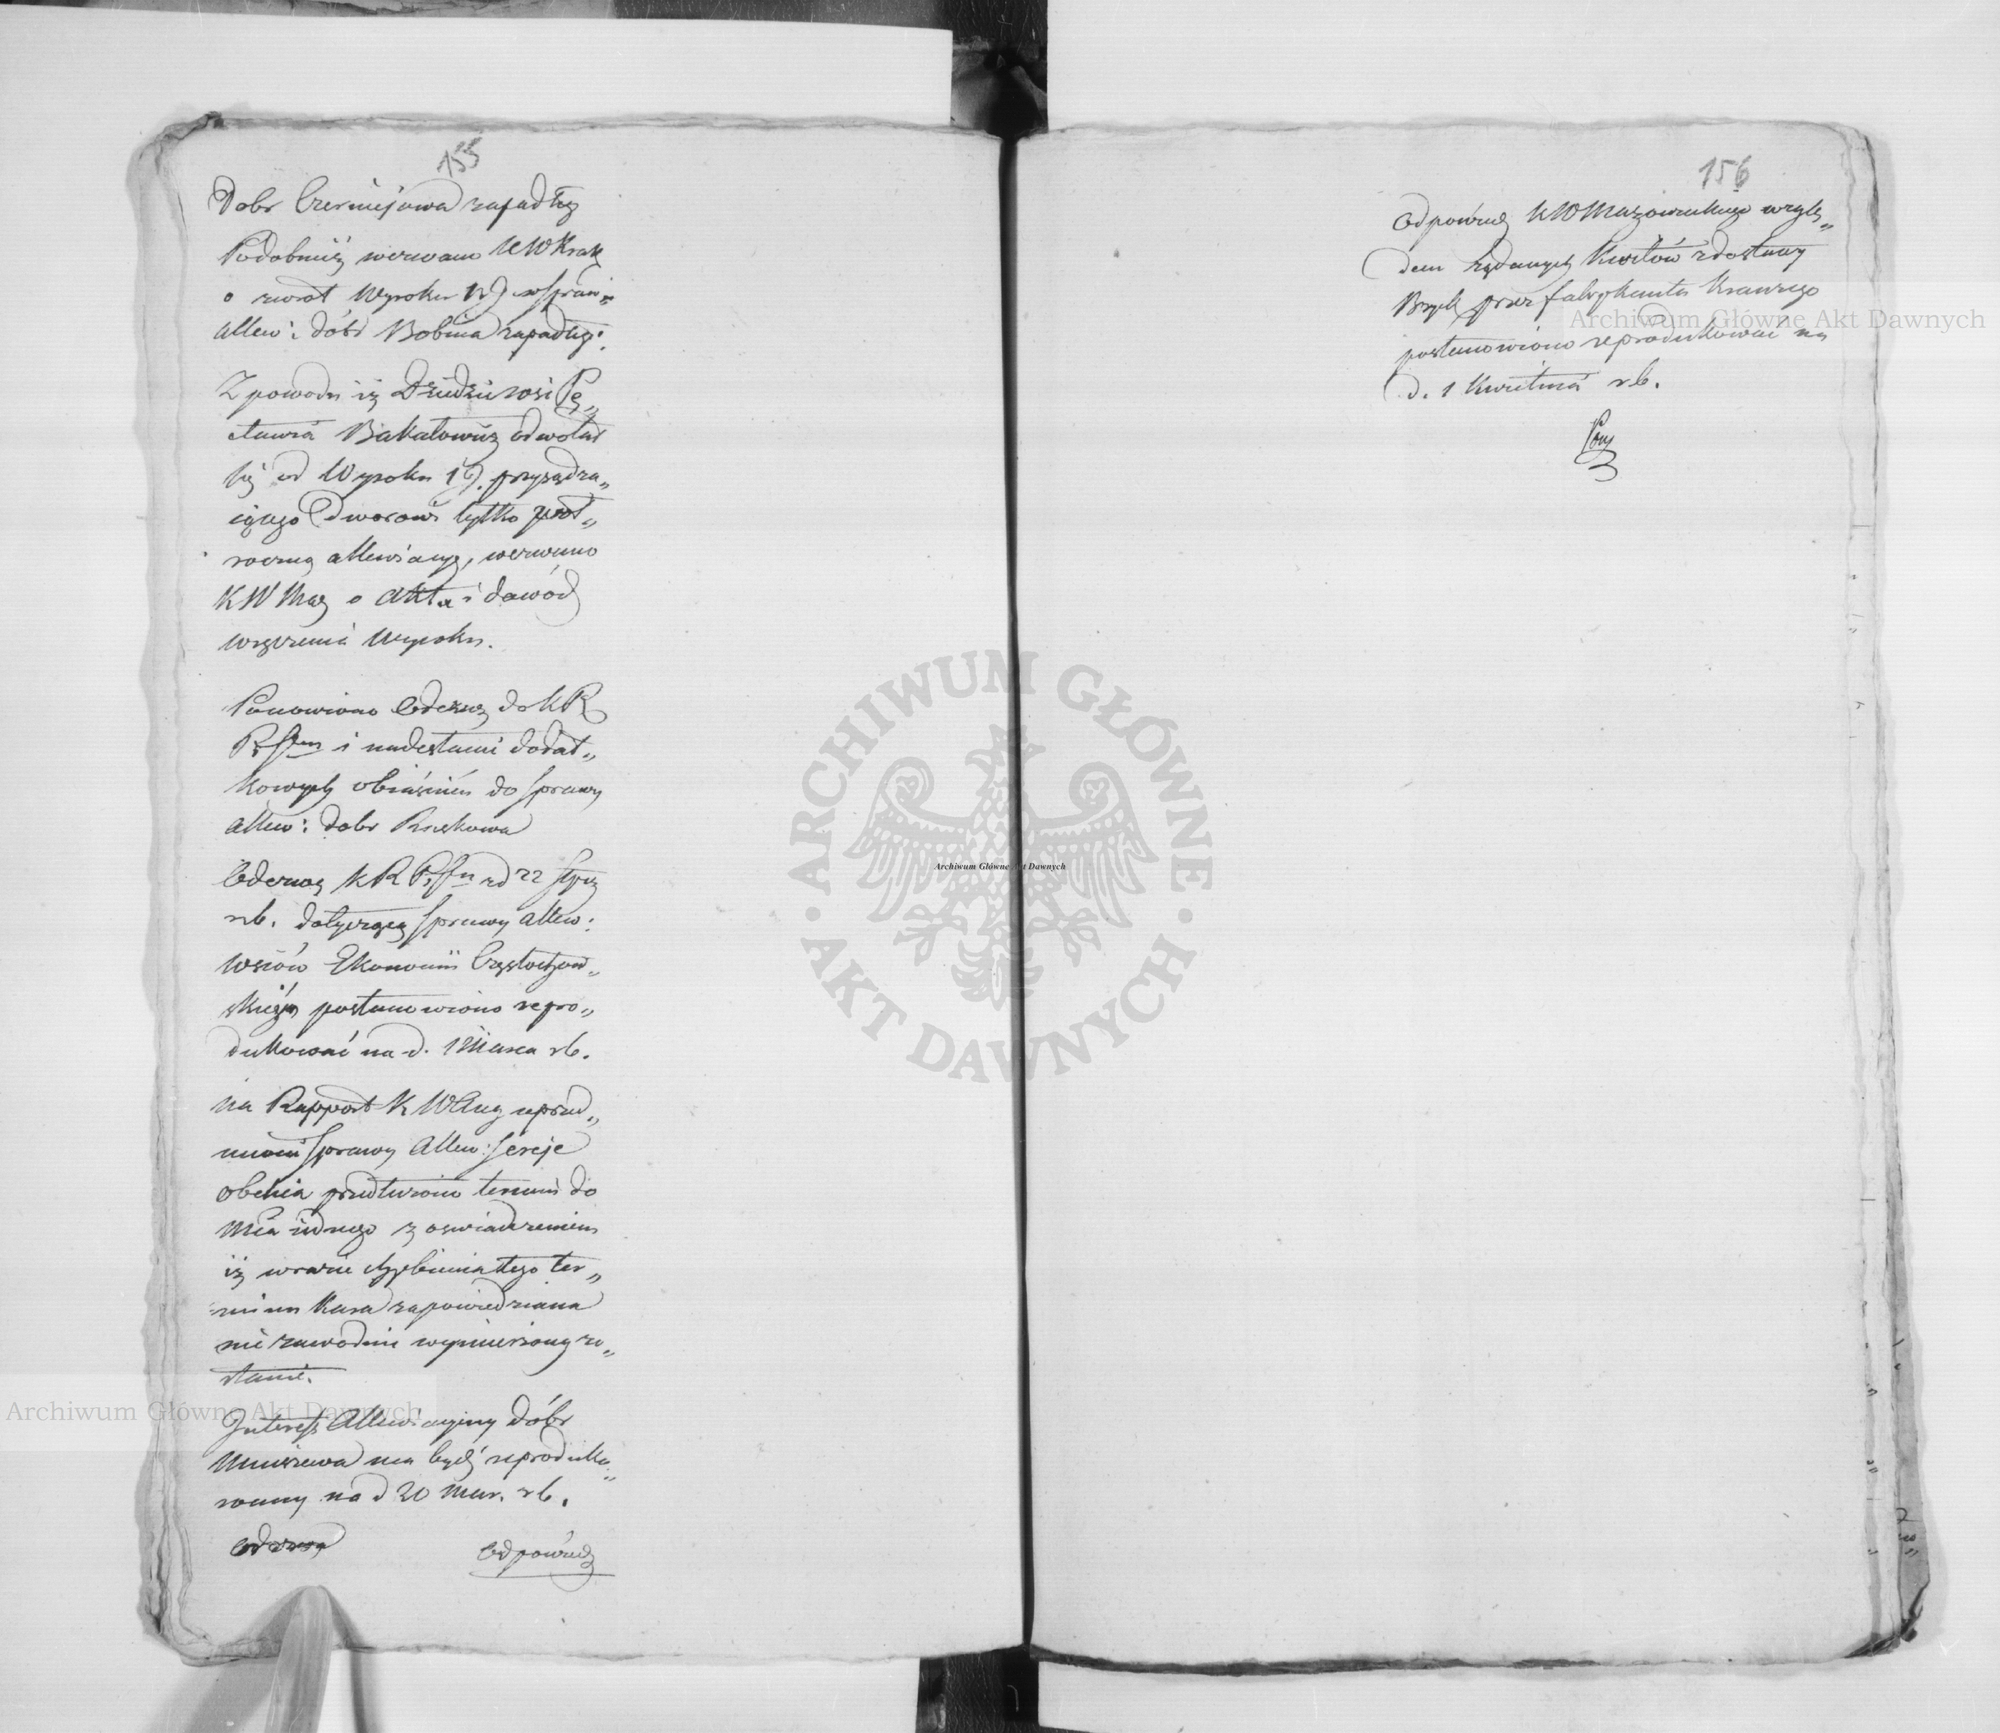 155
Dobr Czerniejowa zapadłég
Podobnież wezwano KWKrak
o zwrot Wyroku 1J w sprawie
allew: dóbr Bobina zapadłeg:
Z powodu iż Dziedzic wsi
Bakałowicz odwołał
się od Wyroku 1J. przysądza„
iącego Dworowi tylko
roczną allewiacyę, wezwano
KW Maz o akta i dowód
wręczenia Wyroku.
Ponowiono Odezwę do KR
i nadesłanie dodat„
kowych obiaśnień do sprawy
allew: dobr
Odezwę KR z d 22 Stycz
rb. dotyczącą sprawy allew:
wsiów Ekonomii Częstochow„
skiéy postanowiono repro„
dukować na d. 1 Marca rb.
na Rapport K W Aug
sprawy allew:
termin do
Mca iednego z oswiadczeniem
iż w razie chybienia tego ter„
minu kara zapowiedziana
niezawodnie wymierzoną zo„
stanie.
Interess Allewiacyiny dóbr
Mniszewa ma bydź reproduko„
wany na d 20 Mar. rb.
Odezwę Odpowiedź
156
Odpowiedź KWMazowieckiego wzglę„
dem żądanych Kwitów z dostawy
przez fabrykanta
postanowiono reprodukować na
d. 1 Kwietnia rb.
Archiwum Główne Akt Dawnych
Archiwum Główne Akt Dawnych
Archiwum Główne Akt Dawnych
ARCHIWUM GŁÓWNE
AKT DAWNYCH